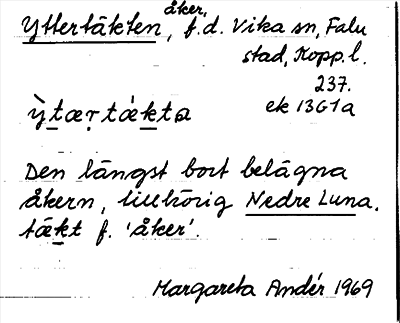 Yttertäkten, åker, f.d. Vika sn, Falu
stad, Kopp.l.
237.
ek 13G1a
ỳtæṛtǽkta
Den längst bort belägna
åkern, tillhörig Nedre Luna.
tækt f. 'åker'.
Margareta Andér 1969